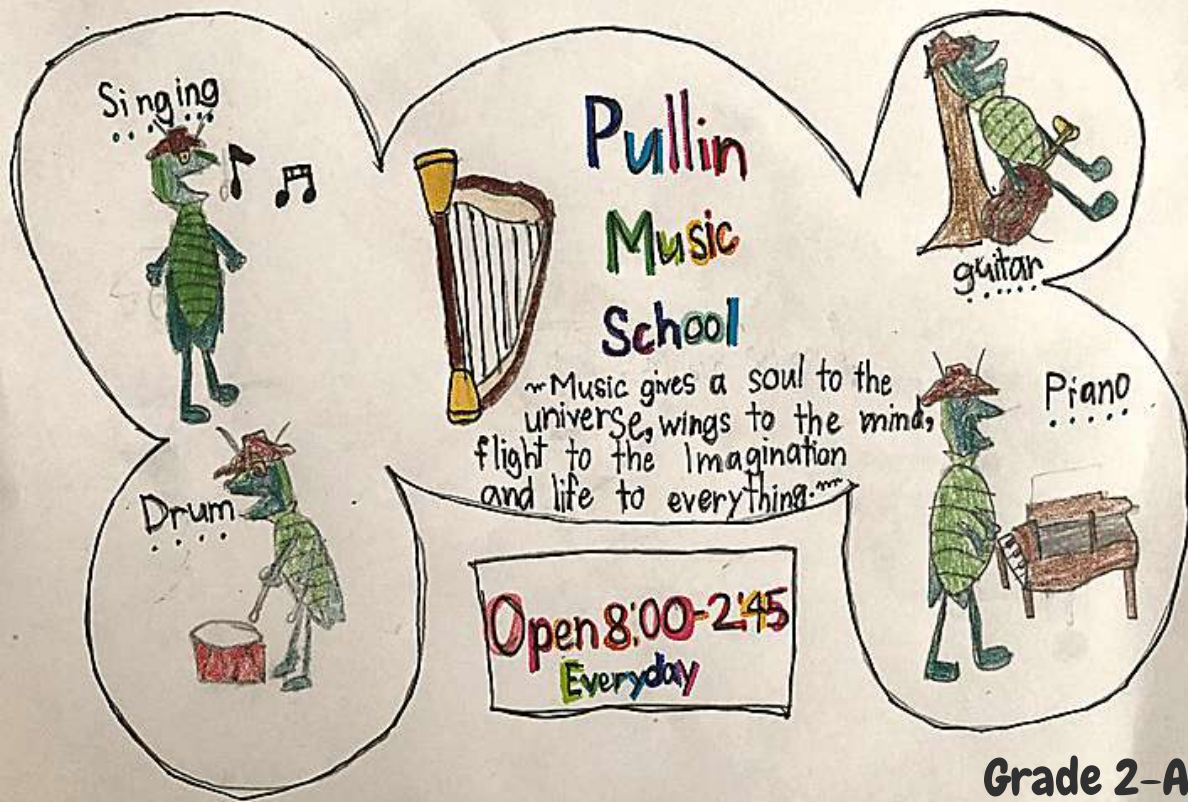 Singing
Pullin
Music
School
~Music gives a soul to the
universe, wings to the mind,
flight to the Imagination
and life to everything.~
guitar
Piano
Drum
Open 8:00-2:45
Everyday
Grade 2-A